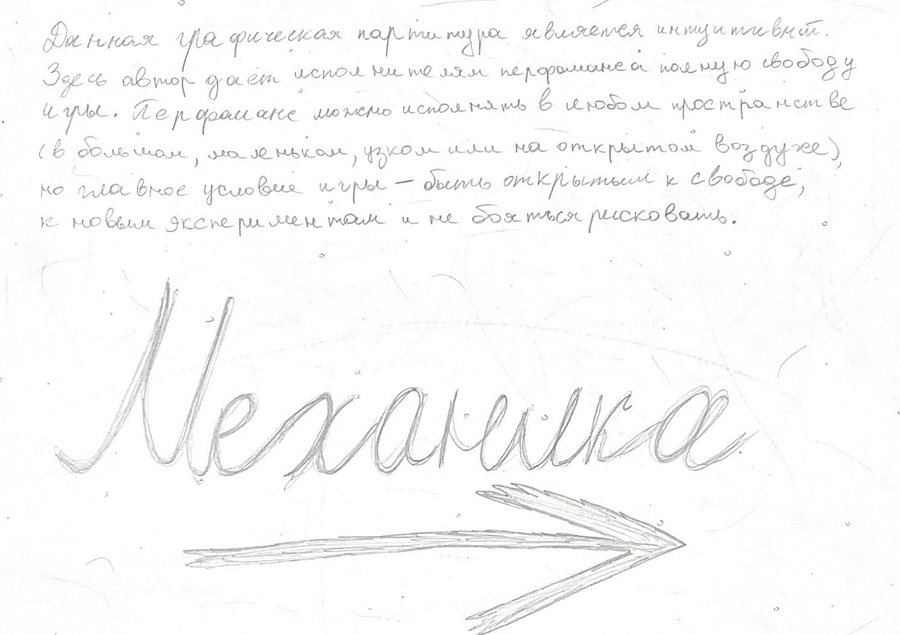 Данная графическая партитура является интуитивной.
Здесь автор даёт исполнителям перфоманса полную свободу
игры. Перфоманс можно исполнять в любом пространстве
(в большом, маленьком, узком или на открытом воздухе),
но главное условие игры – быть открытым к свободе,
к новым экспериментам и не бояться рисковать.
Механика